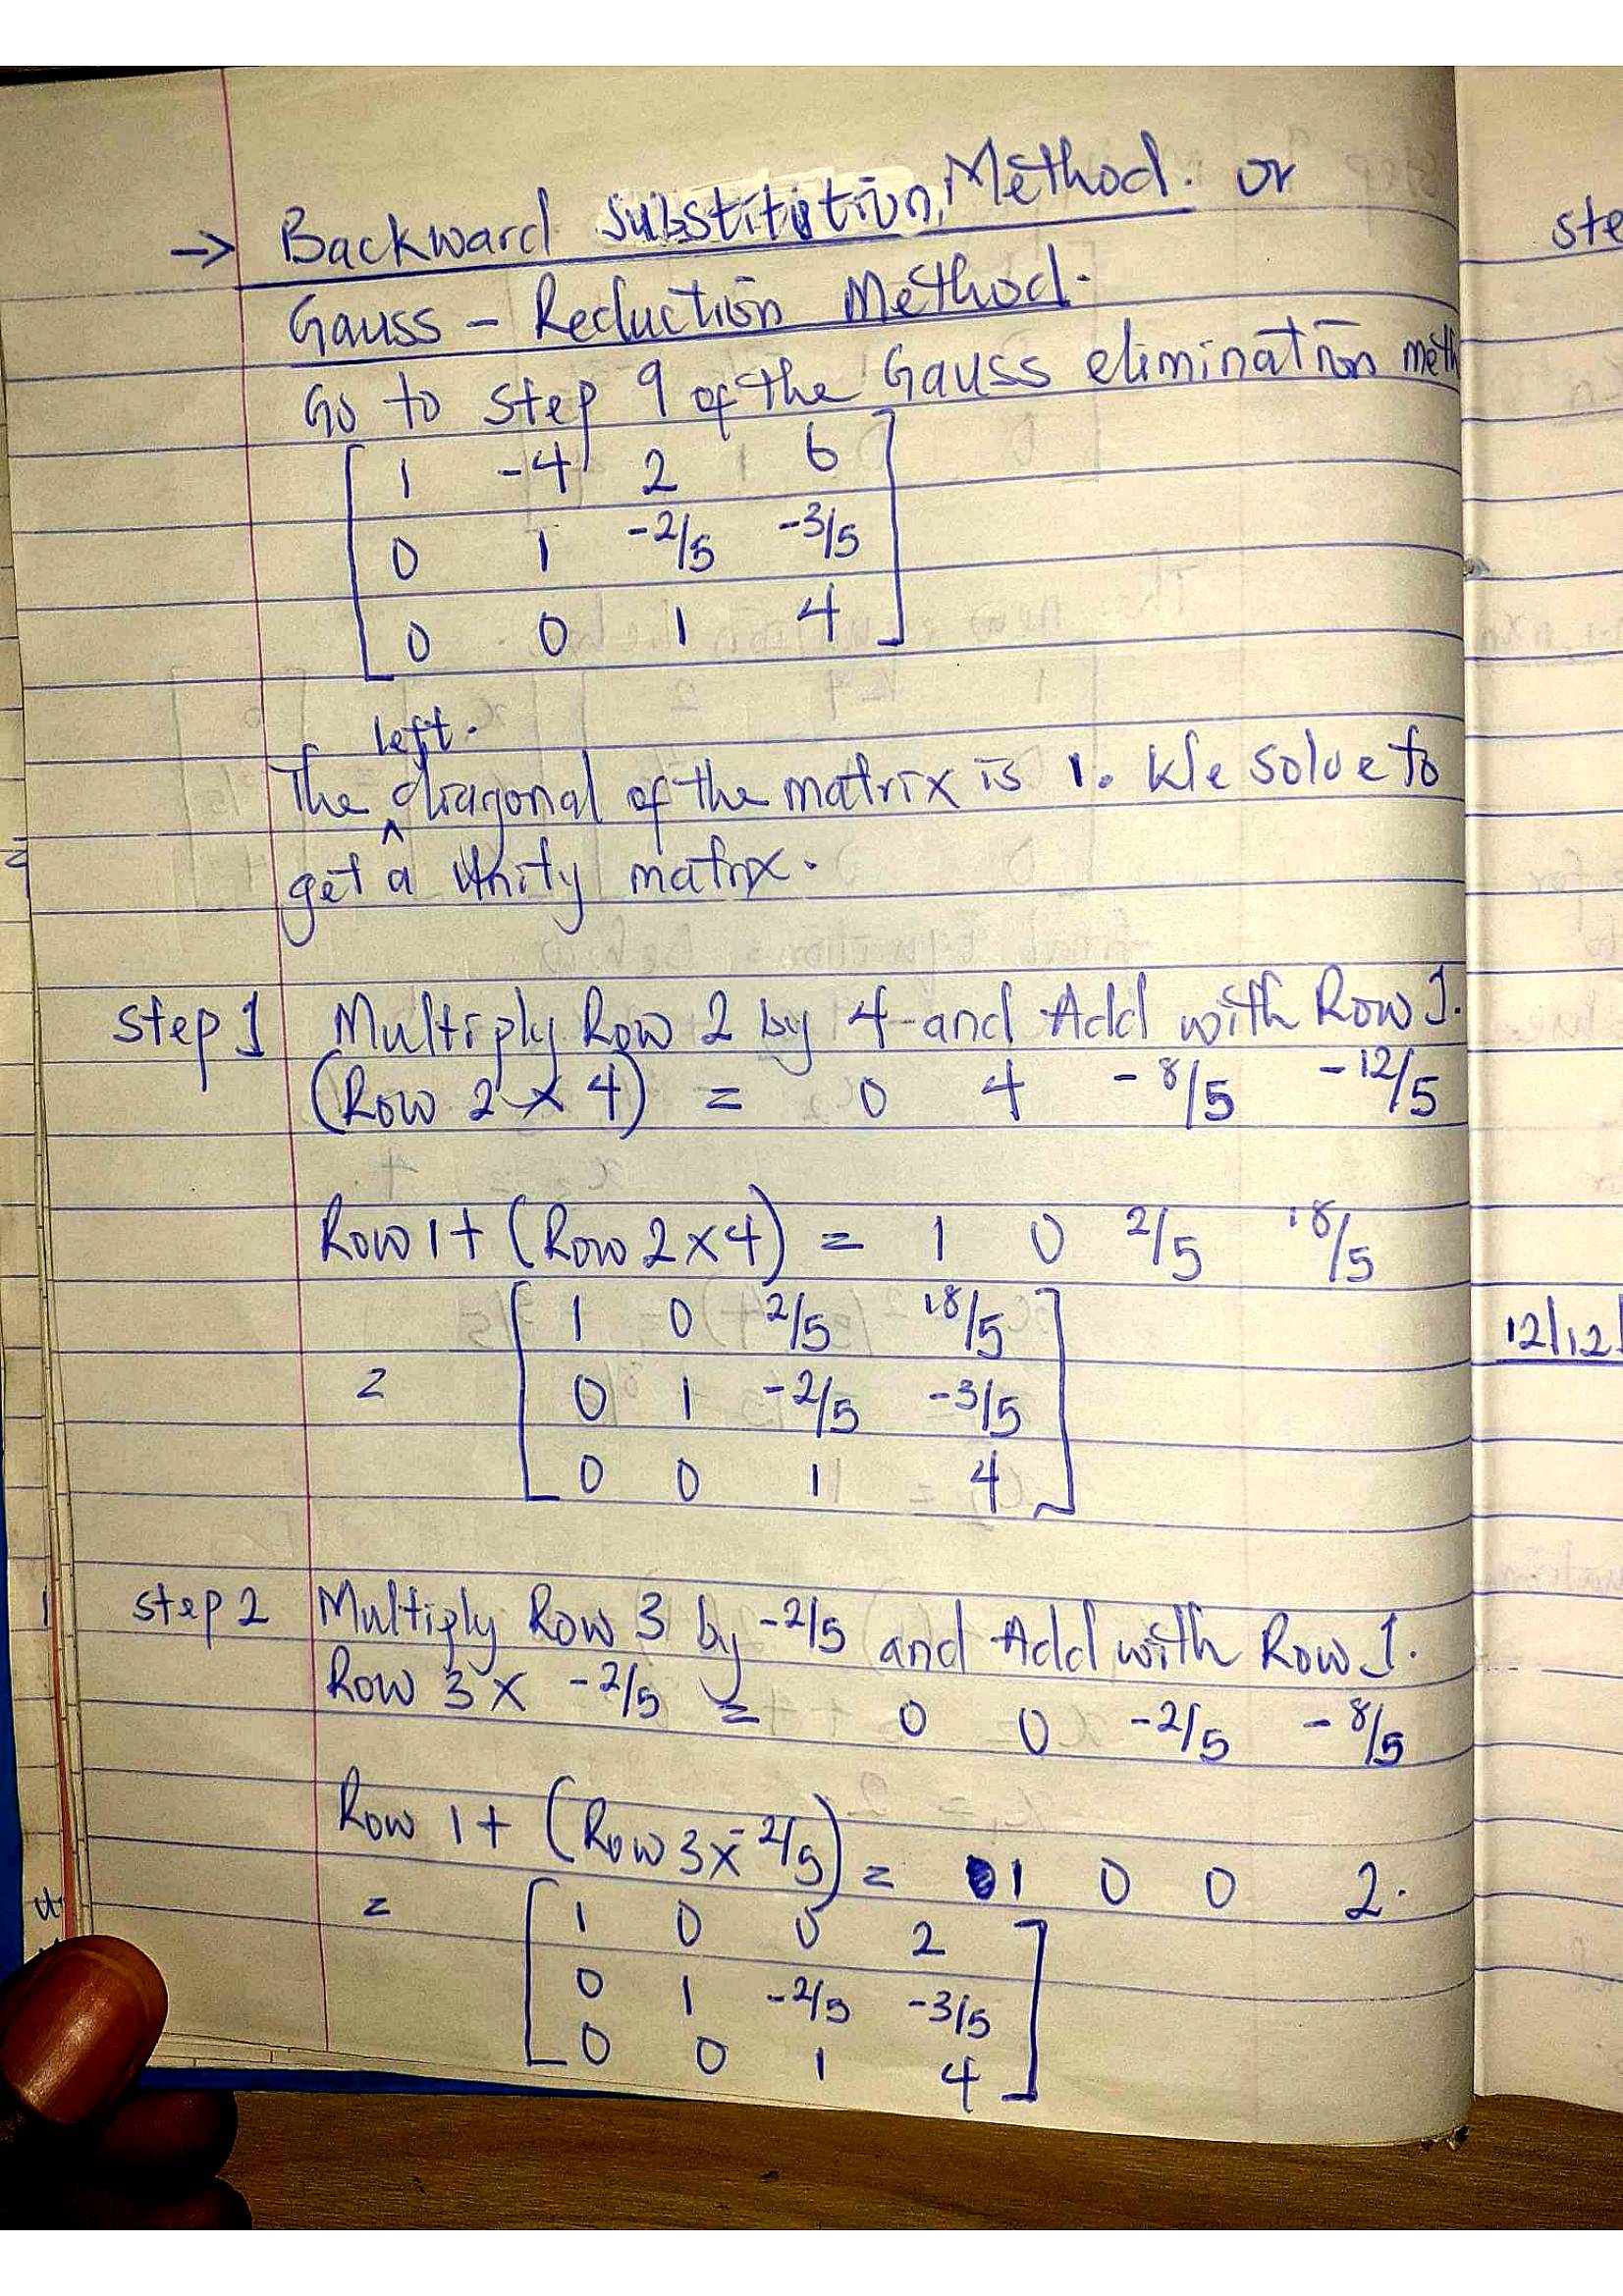 → Backward substitution Method. or
Gauss - Reduction Method.
Go to step 9 of the Gauss elimination meth
1 -4 2 6
0 1 -2/5 -3/5
0 0 1 4
left.
The ^ diagonal of the matrix is 1. We solve to
get a Unity matrix.
step 1 Multiply Row 2 by 4 and Add with Row 1.
(Row 2 x 4) = 0 4 -8/5 -12/5
Row 1 + (Row 2 x 4) = 1 0 2/5 18/5
1 0 2/5 18/5
= 0 1 -2/5 -3/5
0 0 1 4
step 2 Multiply Row 3 by -2/5 and Add with Row 1.
Row 3 x -2/5 = 0 0 -2/5 -8/5
Row 1 + (Row 3 x -2/5) = 1 0 0 2.
= 1 0 0 2
0 1 -2/5 -3/5
0 0 1 4
ste
12/12/